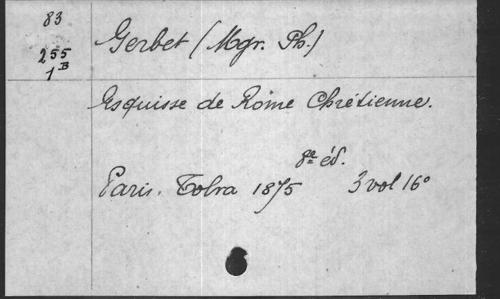 83
255
1B
Gerbet (Mgr. Ph.)
Esquisse de Rome Chrétienne.
8e éd.
Paris. Tolra 1875 3 vol 16°